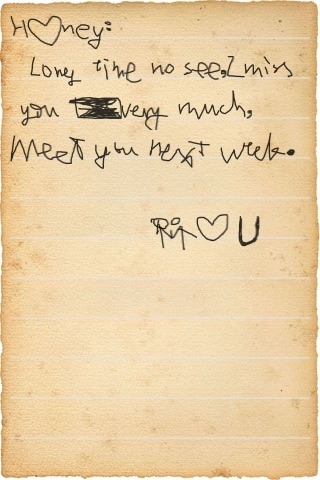 H♡ney:
Long time no see, I miss
you very much.
Meet you next week.
♡ U